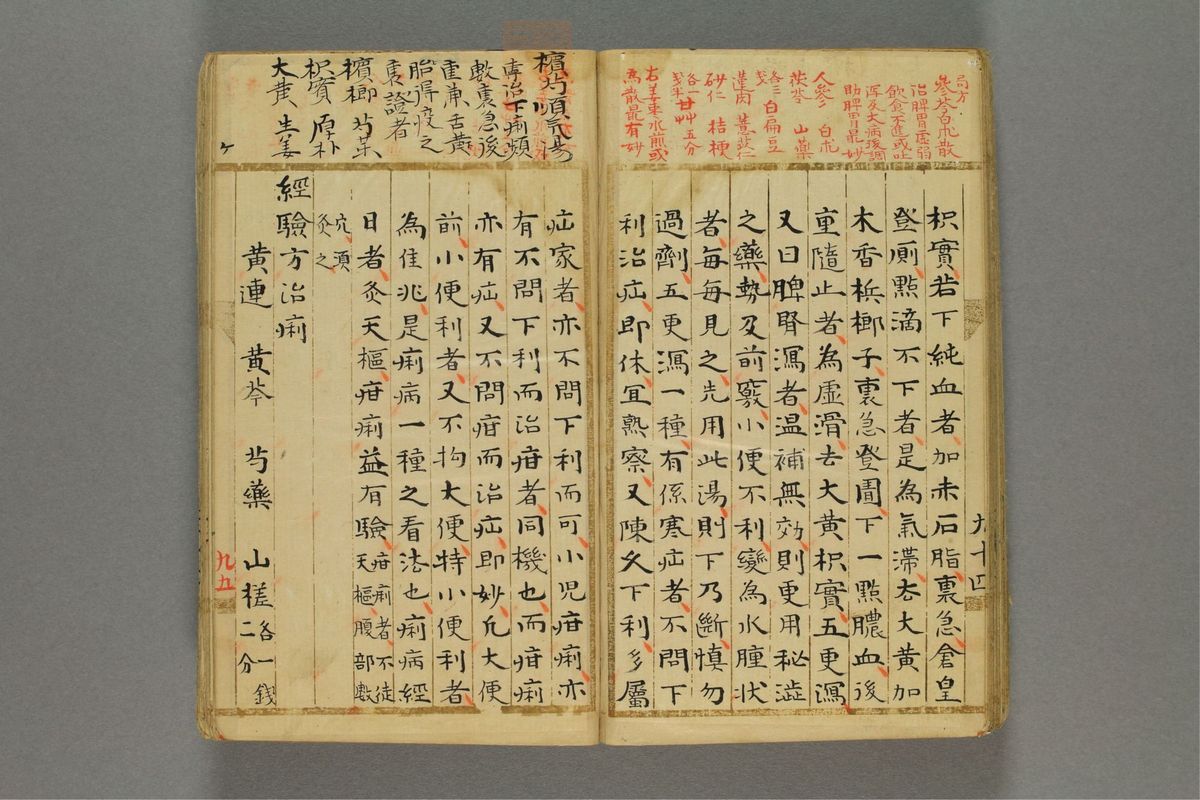 局方
參苓白朮散
治脾胃虛弱
飲食不進或吐
瀉及大病後調
助脾胃最妙
人參 白朮
茯苓 山藥
各三 白扁豆
戔
蓮肉 薏苡仁
砂仁 桔梗
各一 甘艸五分
戔半
右姜棗水煎或
為散最有妙
枳實若下純血者加赤石脂裏急倉皇
登厠點滴不下者是為氣滯去大黄加
木香梹榔子裏急登圊下一點膿血後
重隨止者為虛滑去大黄枳實五更瀉
又曰脾腎瀉者温補無効則更用秘澁
之藥勢及前竅小便不利變為水腫状
者每每見之先用此湯則下乃斷慎勿
過劑五更瀉一種有係寒疝者不問下
利治疝即休宜熟察又陳久下利多屬
九十四
檳芍順氣湯
專治下痢頻
數裏急後
重兼舌黄
胎得疫之
裏證者
檳榔 芍藥
枳實 厚朴
大黄 生姜
疝家者亦不問下利而可小児疳痢亦
有不問下利而治疳者同機也而疳痢
亦有疝又不問疳而治疝即妙凢大便
前小便利者又不拘大便特小便利者
為佳兆是痢病一種之看法也痢病経
日者灸天樞疳痢益有驗疳痢者不徒天樞腹部數
穴須灸之
經驗方治痢
黄連 黄芩 芍藥 山楂各一錢二分
九五